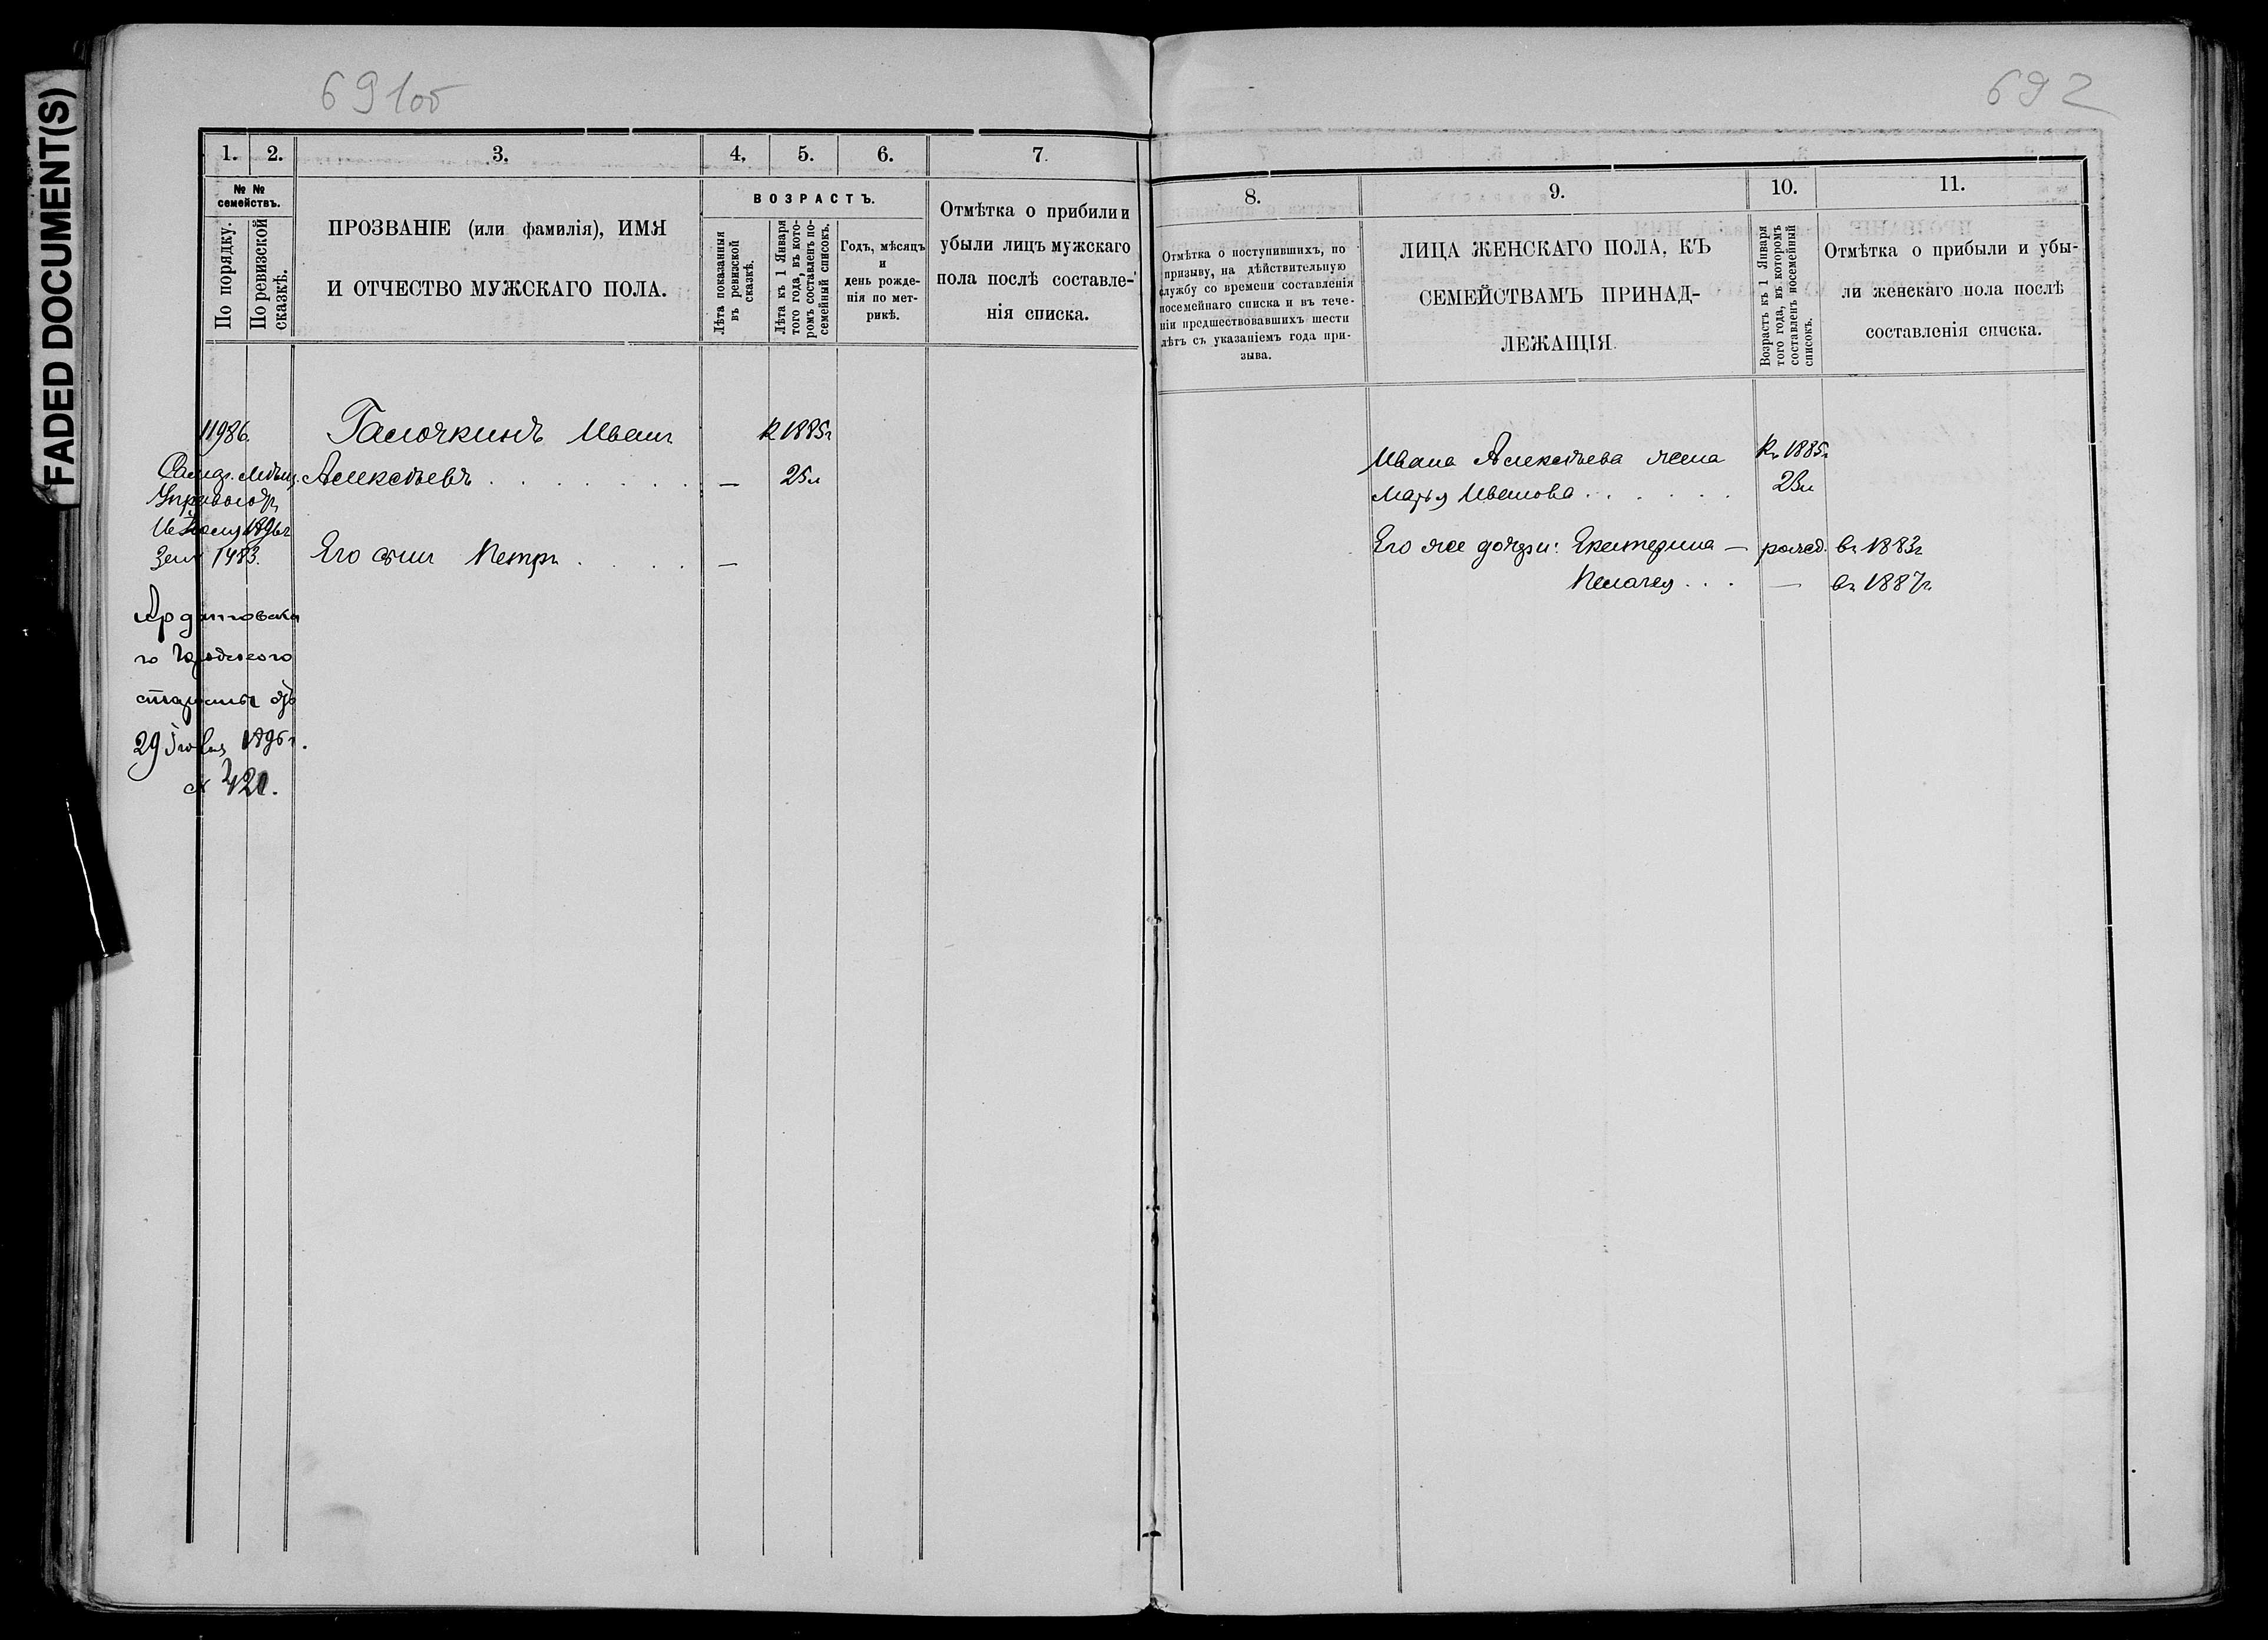 FADED DOCUMENT(S)
691об
692
1. 2. 3. 4. 5. 6. 7.
№ №
семействъ.
По порядку.
По ревизской
сказкѣ.
ПРОЗВАНІЕ (или фамилія), ИМЯ
И ОТЧЕСТВО МУЖСКАГО ПОЛА.
ВОЗРАСТЪ.
Лѣта показанныя
въ ревизской
сказкѣ.
Лѣта къ 1 Января
того года, въ кото-
ромъ составленъ по-
семейный списокъ.
Годъ, мѣсяцъ
и
день рожде-
нія по мет-
рикѣ.
Отмѣтка о прибыли и
убыли лицъ мужскаго
пола послѣ составле-
нія списка.
11986.
Галочкинъ Иванъ
Алексѣевъ . . . . . . .
—
къ 1885г
25л
Его сынъ Петръ . . . .
—
Ардатовска
го Городского
старосты отъ
29 Іюля 1896г.
№ 420.
8. 9. 10. 11.
Отмѣтка о поступившихъ, по
призыву, на дѣйствительную
службу со времени составленія
посемейнаго списка и въ тече-
ніи предшествовавшихъ шести
лѣтъ съ указаніемъ года при-
зыва.
ЛИЦА ЖЕНСКАГО ПОЛА, КЪ
СЕМЕЙСТВАМЪ ПРИНАД-
ЛЕЖАЩІЯ.
Возрастъ къ 1 Января
того года, въ которомъ
составленъ посемейный
списокъ.
Отмѣтка о прибыли и убы-
ли женскаго пола послѣ
составленія списка.
Ивана Алексѣева жена къ 1885г
Марья Иванова . . . . . . 23л
Его же дочери: Екатерина — рожд. въ 1883г
Пелагея . . . — въ 1887г